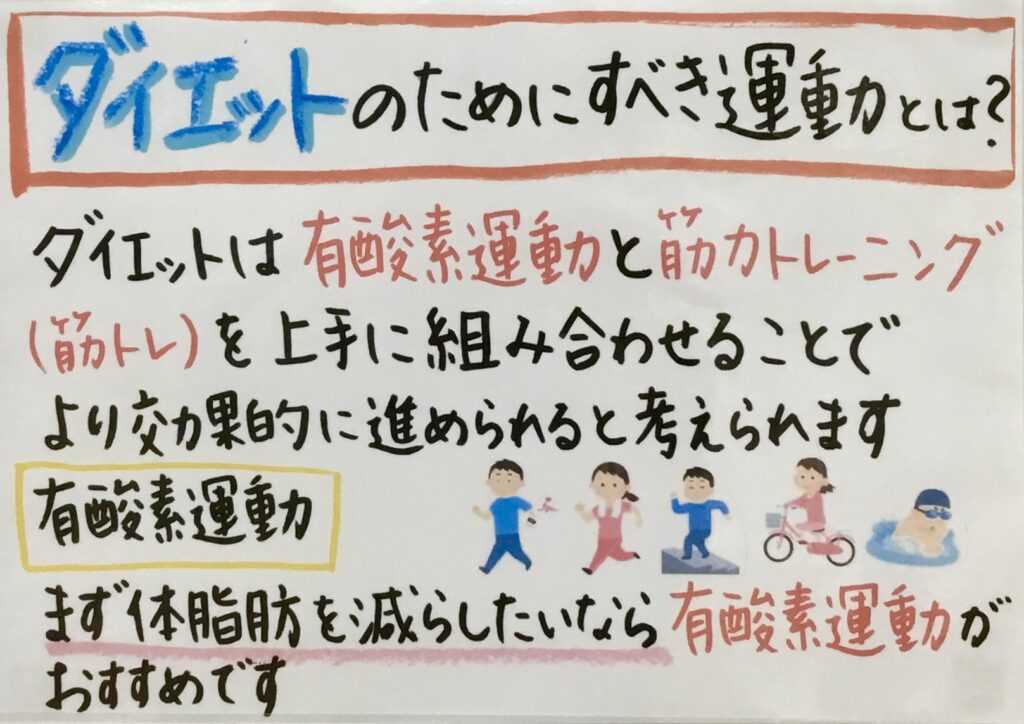 ダイエットのためにすべき運動とは?
ダイエットは有酸素運動と筋力トレーニング
(筋トレ)を上手に組み合わせることで
より効果的に進められると考えられます
有酸素運動
まず体脂肪を減らしたいなら有酸素運動が
おすすめです